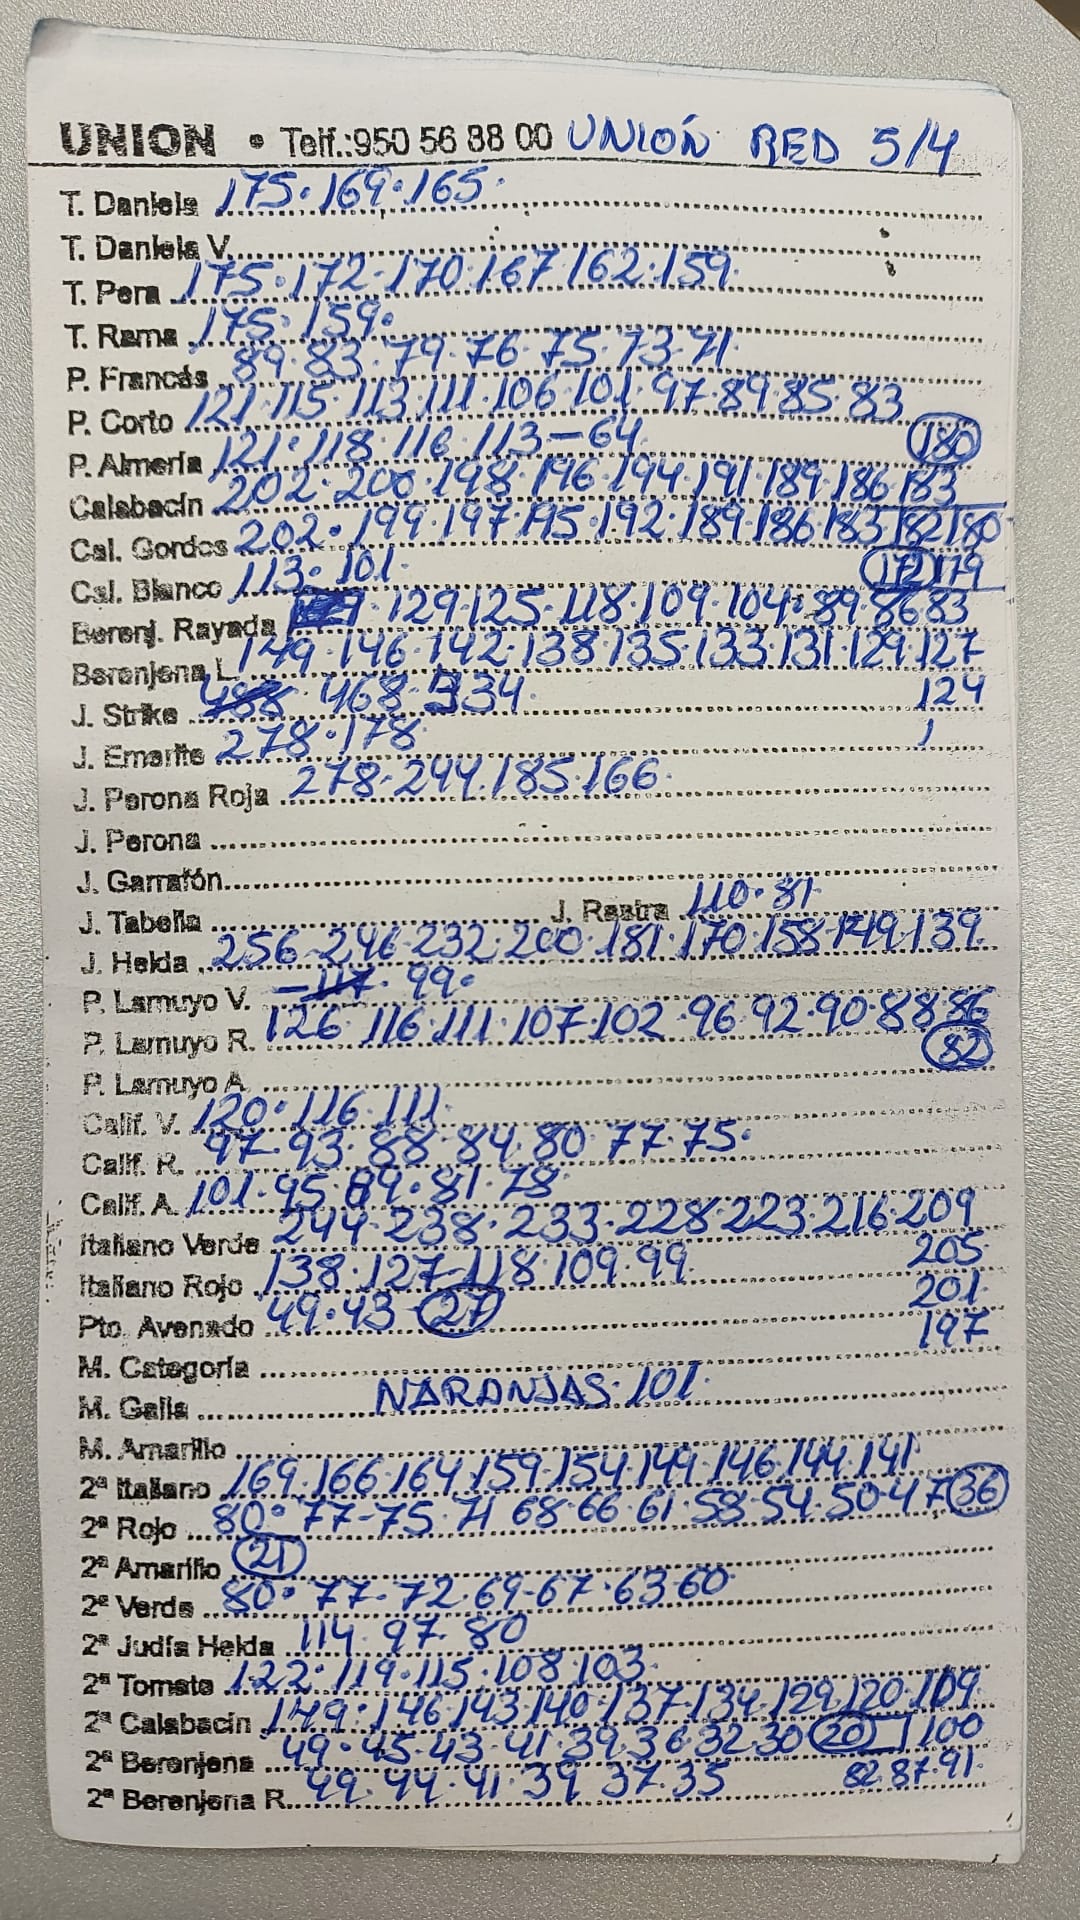 UNION • Telf.:950 56 88 00 UNIÓN RED 5/4
T. Daniela 175·169·165·
T. Daniela V.
T. Pera 175·172-170·167·162·159·
T. Rama 175·159·
P. Francés 89·83·79·76·75·73·71·
P. Corto 121·115·113·111·106·101·97·89·85·83
P. Almería 121·118·116·113-64· 180
Calabacín 202·200·198·196·194·191·189·186·183
Cal. Gordos 202·199·197·195·192·189·186·183 182 180
Cal. Blanco 113·101· 172 179
Berenj. Rayada 129·125·118·109·104·89·86·83
Berenjena L. 149·146·142·138·135·133·131·129·127
J. Strike 488 468·334· 124
J. Emerite 278·178·
J. Perona Roja 278-244·185·166·
J. Perona
J. Garrafón
J. Tabella J. Rastra 110·81·
J. Helda 256-246-232·200·181·170·158·149·139·
P. Lamuyo V. -117·99·
P. Lamuyo R. 126·116·111·107·102·96·92·90·88·86
P. Lamuyo A. 82
Calif. V. 120·116·111·
Calif. R. 97·93·88·84·80·77·75·
Calif. A. 101·95·89·81·78·
Italiano Verde 244·238·233·228·223·216·209
Italiano Rojo 138·127-118·109·99· 205·
Pto. Avenado 49·43-27 201·
M. Categoría 197
M. Galia NARANJAS·101·
M. Amarillo
2ª Italiano 169·166·164·159·154·149·146·144·141
2ª Rojo 80·77-75·71·68·66·61·58·54·50·47 36
2ª Amarillo 21
2ª Verde 80·77-72·69-67·63·60·
2ª Judía Helda 114·97·80
2ª Tomate 122·119·115·108·103·
2ª Calabacín 149·146·143·140·137·134·129·120·109·
2ª Berenjena 49·45·43·41·39·36·32·30 20 100
2ª Berenjena R. 49·44·41·39·37·35 82·87·91·